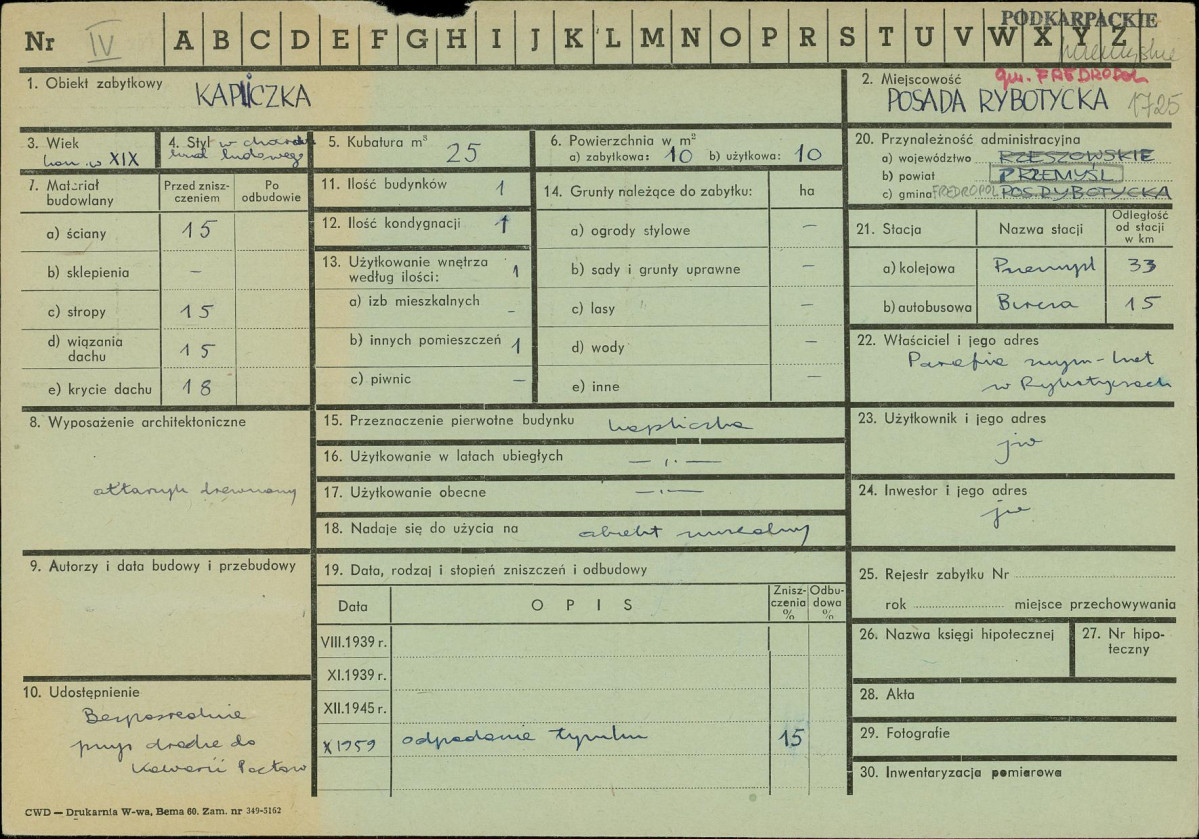 PODKARPACKIE
Nr IV A B C D E F G H I J K L M N O P R S T U V W X Y Z
przemyskie
1. Obiekt zabytkowy
KAPLICZKA
2. Miejscowość gm. FREDROPOL
POSADA RYBOTYCKA 1725
3. Wiek
kon. w XIX
4. Styl w charak
ludowego
5. Kubatura m³ 25
6. Powierzchnia w m²
a) zabytkowa: 10 b) użytkowa: 10
20. Przynależność administracyjna
a) województwo RZESZOWSKIE
b) powiat PRZEMYŚL
c) gmina FREDROPOL POS. RYBOTYCKA
7. Materiał budowlany
Przed zniszczeniem
Po odbudowie
a) ściany 15
b) sklepienia –
c) stropy 15
d) wiązania dachu 15
e) krycie dachu 18
11. Ilość budynków 1
12. Ilość kondygnacji 1
13. Użytkowanie wnętrza według ilości: 1
a) izb mieszkalnych -
b) innych pomieszczeń 1
c) piwnic –
14. Grunty należące do zabytku: ha
a) ogrody stylowe –
b) sady i grunty uprawne –
c) lasy –
d) wody –
e) inne –
21. Stacja
Nazwa stacji
Odległość od stacji w km
a) kolejowa Przemyśl 33
b) autobusowa Bircza 15
22. Właściciel i jego adres
Parafia rzym-kat
w Rybotyczach
8. Wyposażenie architektoniczne
ołtarzyk drewniany
15. Przeznaczenie pierwotne budynku kapliczka
16. Użytkowanie w latach ubiegłych — „ —
17. Użytkowanie obecne — „ —
18. Nadaje się do użycia na obiekt muzealny
23. Użytkownik i jego adres
jw
24. Inwestor i jego adres
jw
9. Autorzy i data budowy i przebudowy
19. Data, rodzaj i stopień zniszczeń i odbudowy
Data
O P I S
Zniszczenia %
Odbudowa %
VIII.1939 r.
XI.1939 r.
XII.1945 r.
X 1959 odpadanie tynku 15
25. Rejestr zabytku Nr
rok miejsce przechowywania
26. Nazwa księgi hipotecznej
27. Nr hipoteczny
28. Akta
29. Fotografie
30. Inwentaryzacja pomiarowa
10. Udostępnienie
Bezpośrednie
przy drodze do
Kalwarii Pacław
CWD — Drukarnia W-wa, Bema 60. Zam. nr 349-5162